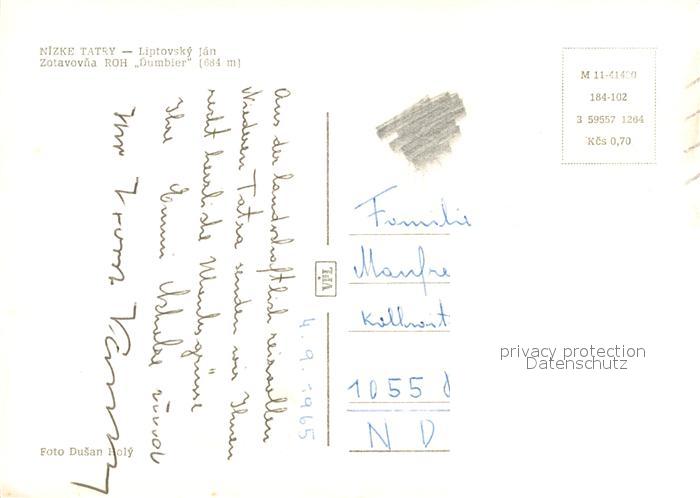 NÍZKE TATRY — Liptovský Ján
Zotavovňa ROH „Ďumbier" (684 m)
M 11-41420
184-102
3 59557 1264
Kčs 0,70
Aus der landschaftlich reizvollen
Niederen Tatra senden wir Ihnen
recht herzliche Urlaubsgrüsse
Ihre Emmi
Ihr
4. 9. 1965
Familie
Manfre
1055
N D
privacy protection
Datenschutz
Foto Dušan Holý